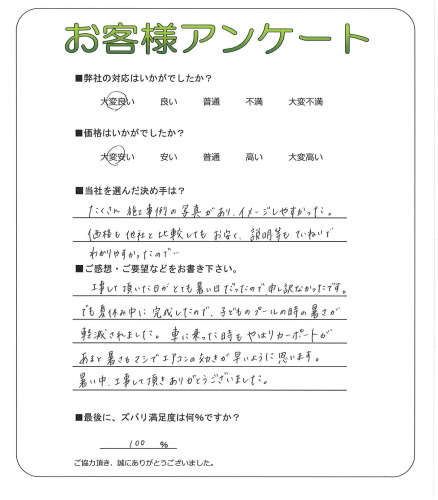 お客様アンケート
■弊社の対応はいかがでしたか？
大変良い 良い 普通 不満 大変不満
■価格はいかがでしたか？
大変安い 安い 普通 高い 大変高い
■当社を選んだ決め手は？
たくさん施工事例の写真があり、イメージしやすかった。
価格も他社と比較してもお安く、説明等もていねいで
わかりやすかったので…
■ご感想・ご要望などをお書き下さい。
工事して頂いた日がとても暑い日だったので申し訳なかったです。
でも夏休み中に完成したので、子どものプールの時の暑さが
軽減されました。車に乗った時もやはりカーポートが
あると暑さもマシでエアコンの効きが早いように思います。
暑い中、工事して頂きありがとうございました。
■最後に、ズバリ満足度は何％ですか？
100 %
ご協力頂き、誠にありがとうございました。